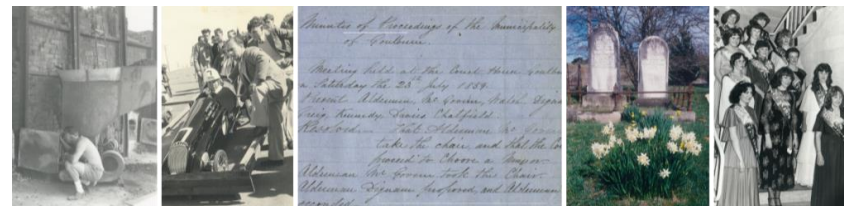 Minutes of Proceedings of the Municipality
of Goulburn.
Meeting held at the Court House Goulbu
Saturday the 23rd July 1859.
Present Aldermen, Mc Govern, Walsh, Signam
Craig, Kennedy, Davies Chatfield.
Resolved That Alderman Mc Govern
take the chair, and that the
proceed to Choose a
Alderman Mc Govern took the Chair
Alderman Dignam proposed, and Alderman
seconded